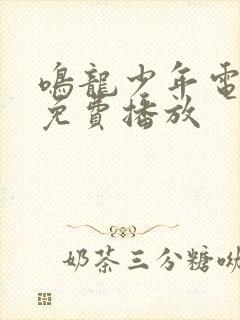 鳴龍少年電
免費播放
奶茶三分糖呦